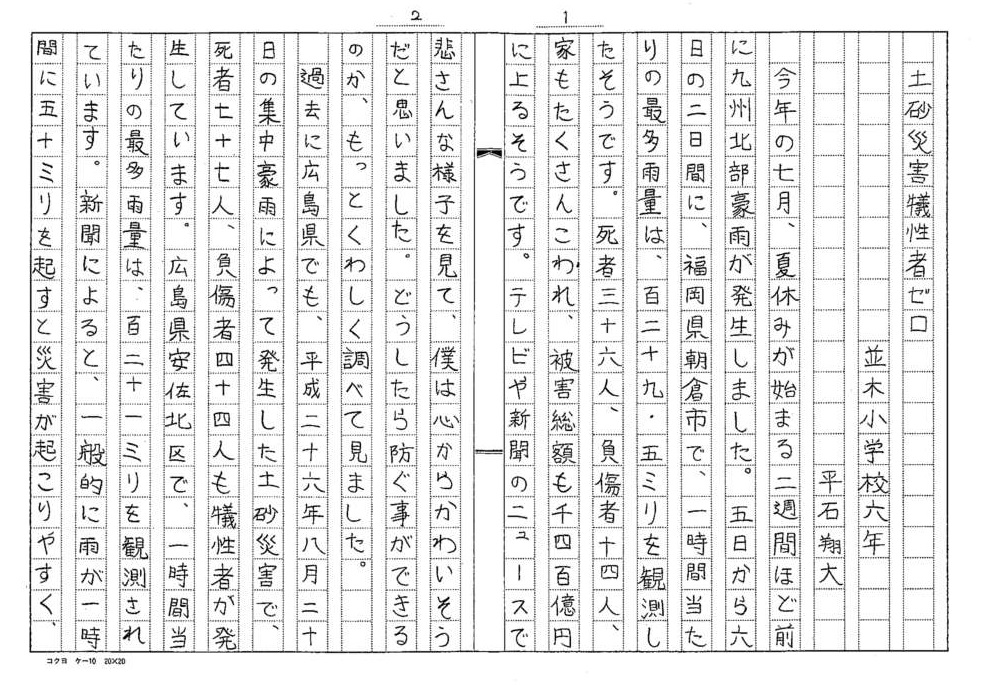 1
土砂災害犠性者ゼロ
並木小学校六年
平石翔大
今年の七月、夏休みが始まる二週間ほど前
に九州北部豪雨が発生しました。五日から六
日の二日間に、福岡県朝倉市で、一時間当た
りの最多雨量は、百二十九・五ミリを観測し
たそうです。死者三十六人、負傷者十四人、
家もたくさんこわれ、被害総額も千四百億円
に上るそうです。テレビや新聞のニュースで
2
悲さんな様子を見て、僕は心からかわいそう
だと思いました。どうしたら防ぐ事ができる
のか、もっとくわしく調べて見ました。
過去に広島県でも、平成二十六年八月二十
日の集中豪雨によって発生した土砂災害で、
死者七十七人、負傷者四十四人も犠性者が発
生しています。広島県安佐北区で、一時間当
たりの最多雨量は、百二十一ミリを観測され
ています。新聞によると、一般的に雨が一時
間に五十ミリを起すと災害が起こりやすく、
コクヨ ケー10 20×20